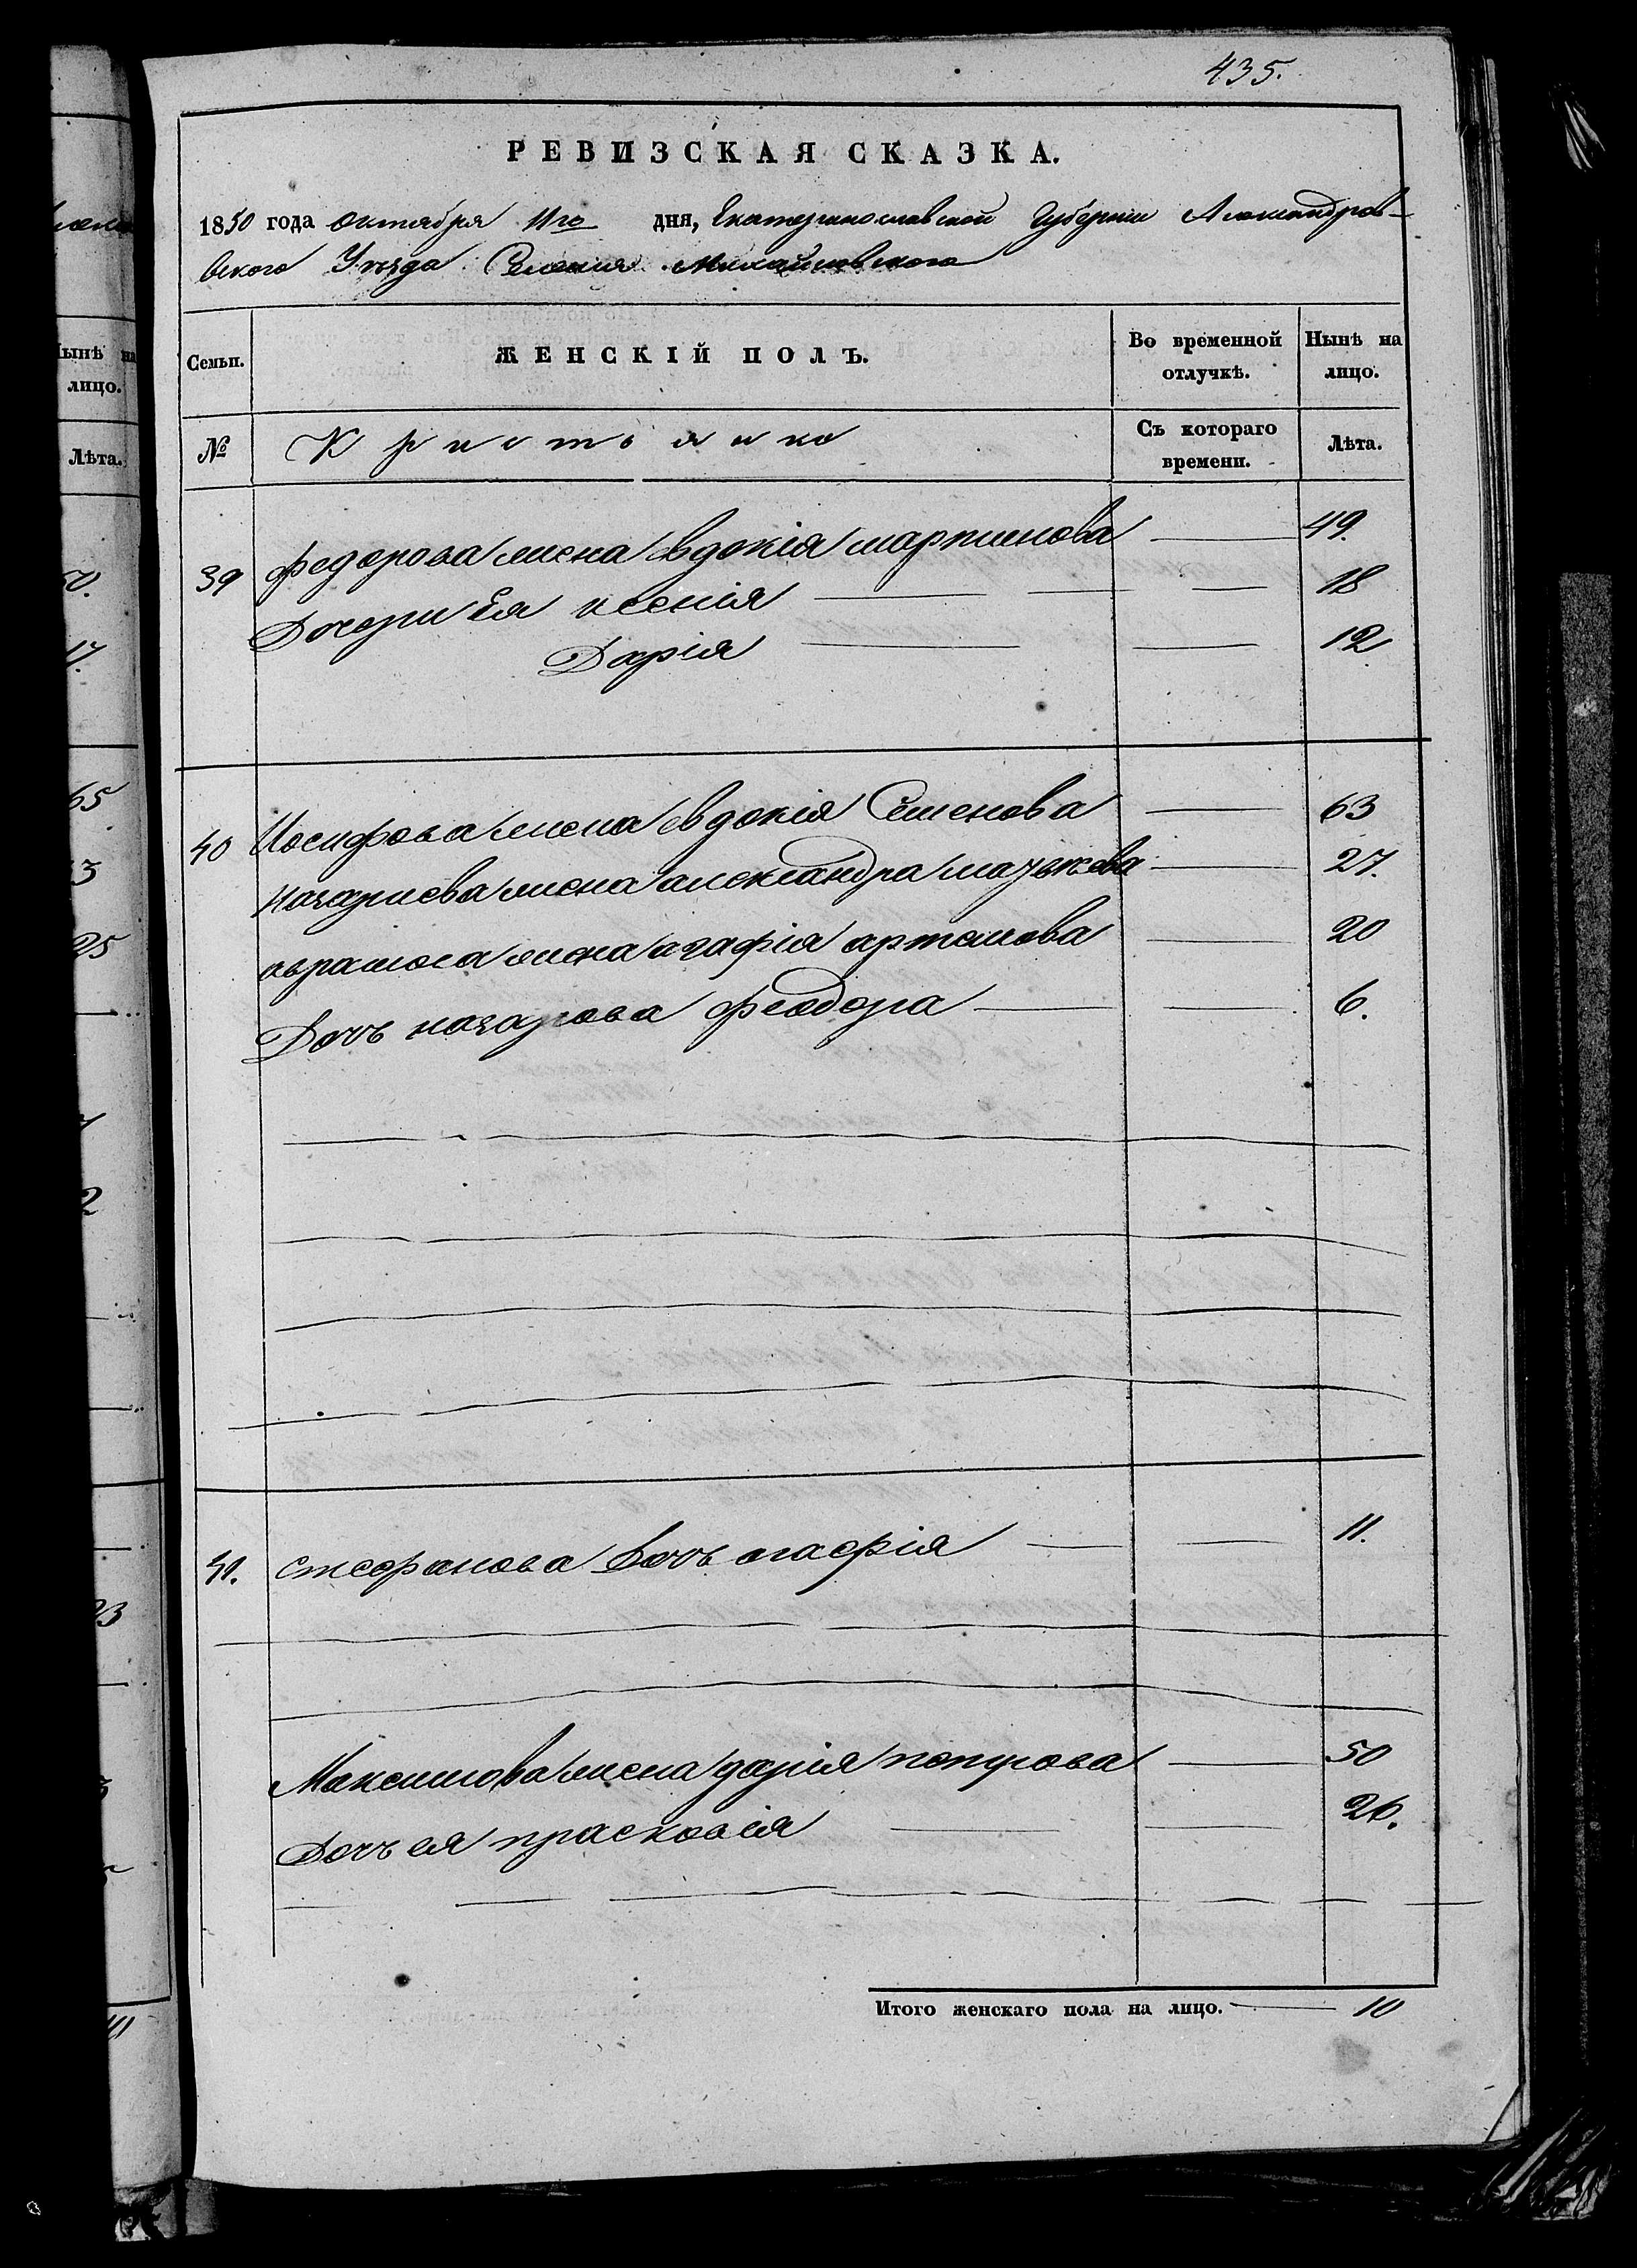 435.
РЕВИЗСКАЯ СКАЗКА.
1850 года октября 11го дня, Екатеринославской Губернии Александров-
вского Уезда Селения Михайловского
Семьи. ЖЕНСКІЙ ПОЛЪ. Во временной отлучкѣ. Нынѣ на лицо.
№ Крестьянко Съ котораго времени. Лѣта.
39 Федорова жена Евдокія мартинова 49.
Дочери Ея ксенія 18
Дарія 12
40 Иосифова жена Евдокія Семенова 63
назариева жена александра 27.
аврамова жена агафія артемова 20
Дочь назарова Феодора 6.
41. стефанова Дочь агафія 11.
Максимова жена дарія петрова 50
Дочь ея прасковія 26.
Итого женскаго пола на лицо. 10
Нынѣ на
лицо.
Лѣта.
17.
65
25